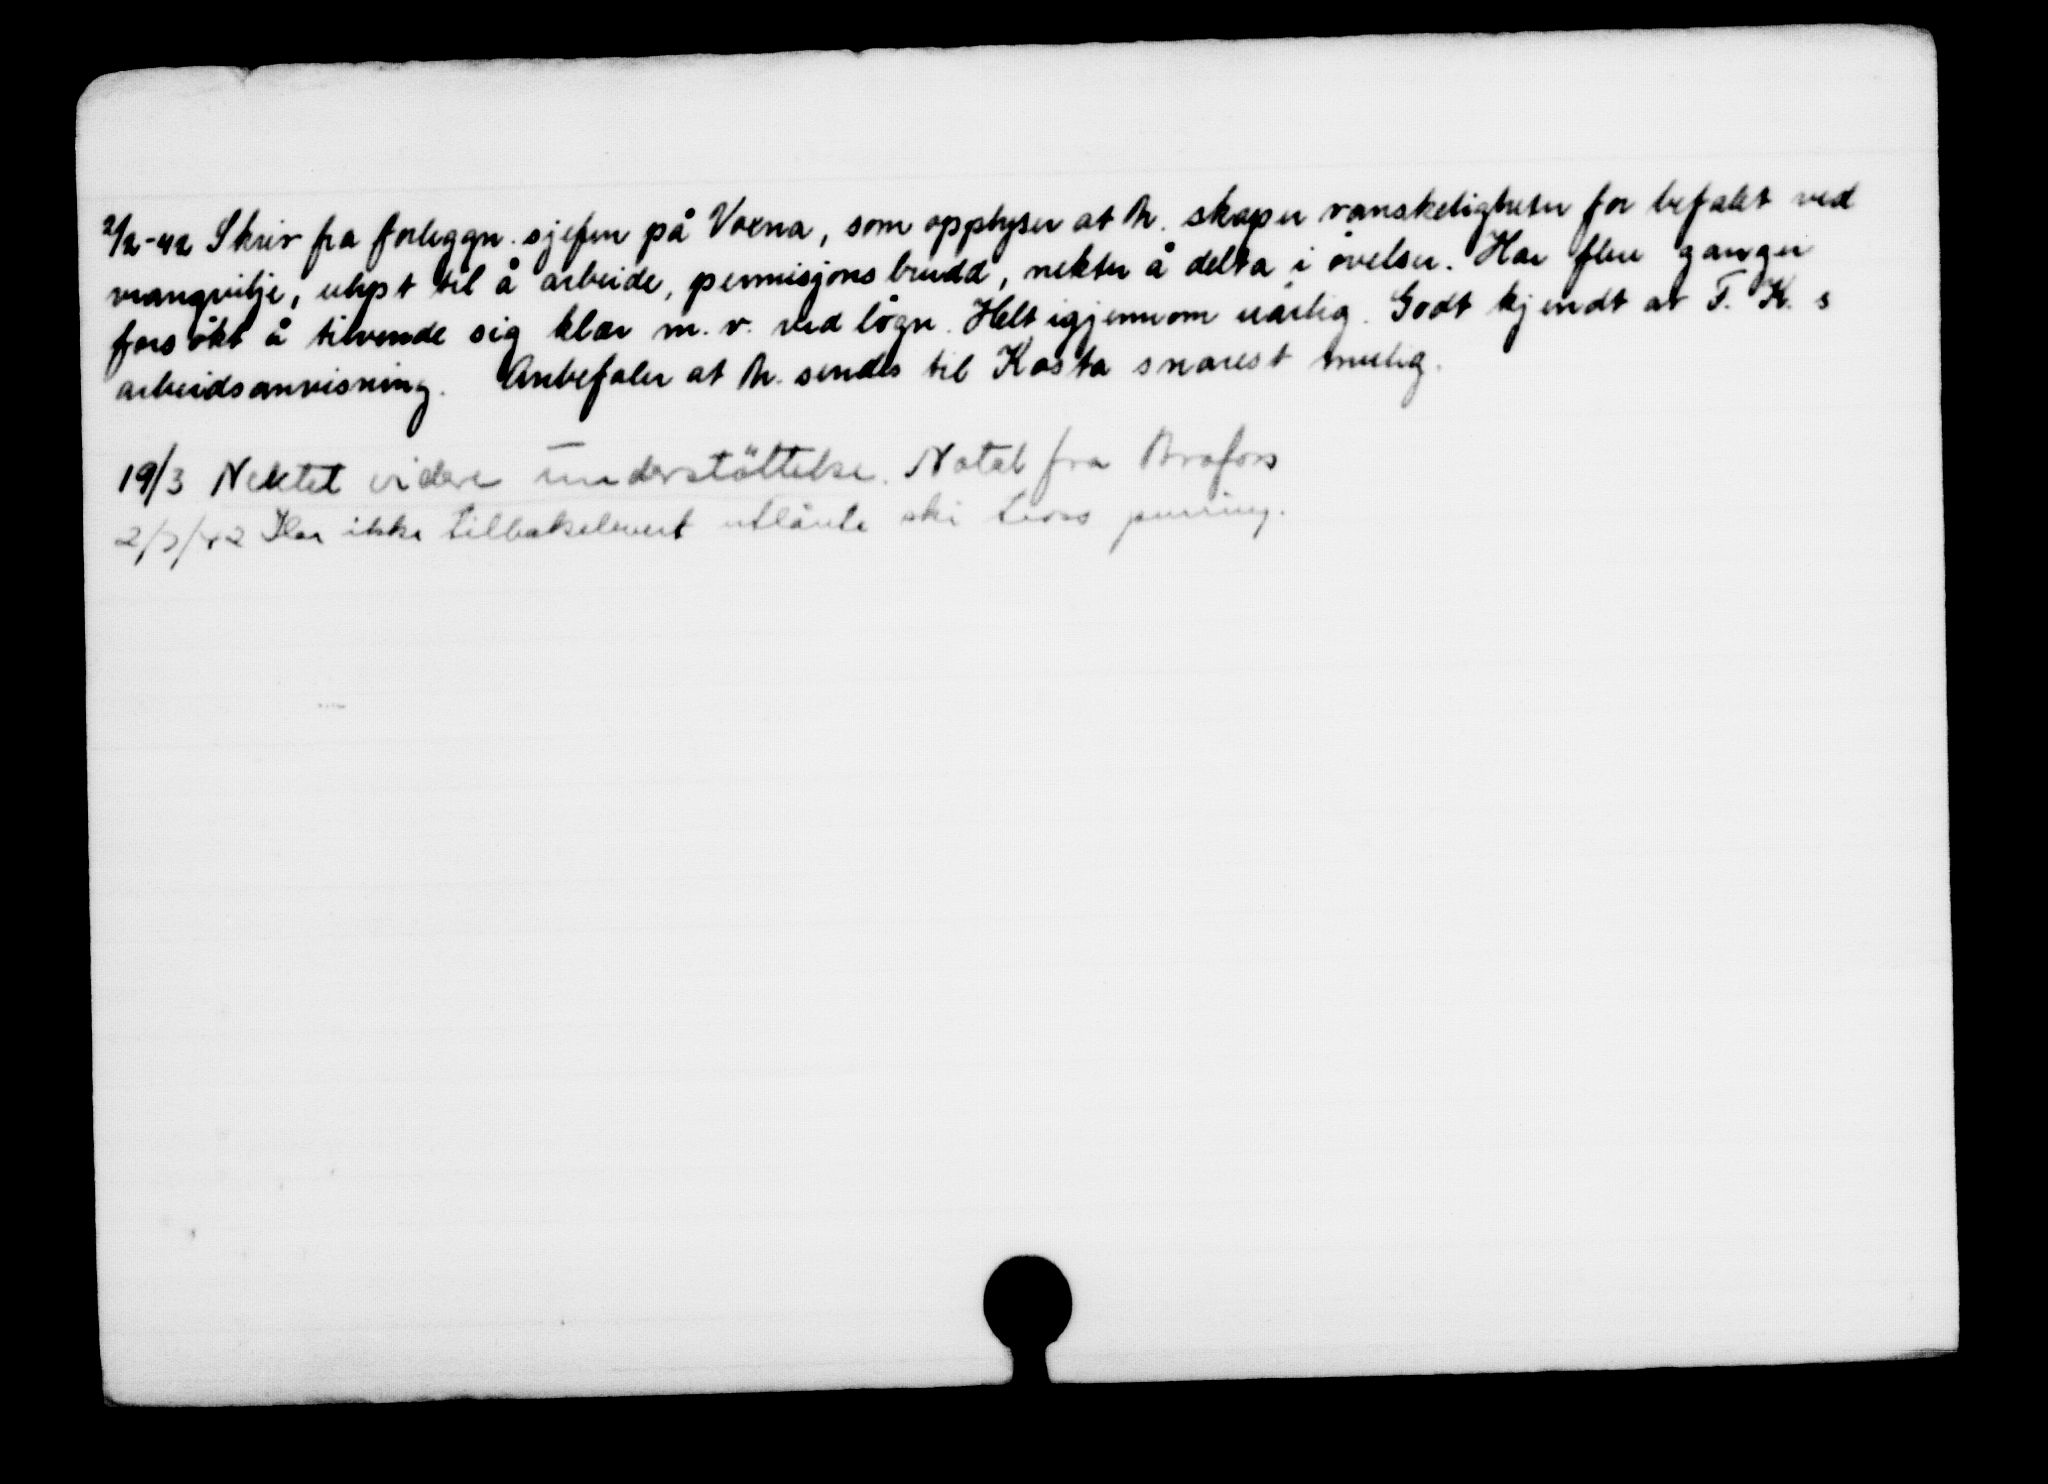 2/2-42 Skriv fra forleggn. sjefen på Voxna, som opplyser at N. skaper vanskeligheter for befalet ved
vrangvilje, ulyst til å arbeide, permisjonsbrudd, nekter å delta i øvelser. Har flere ganger
forsökt å tilvende sig klær m.v. ved lögn. Helt igjennom uærlig. Godt kjendt av F. K. s
arbeidsanvisning. Anbefaler at N. sendes til Kosta snarest mulig.
19/3 Nektet videre understöttelse. Notat fra
2/7/42 Har ikke tilbakelevert utlånte ski tross purring.